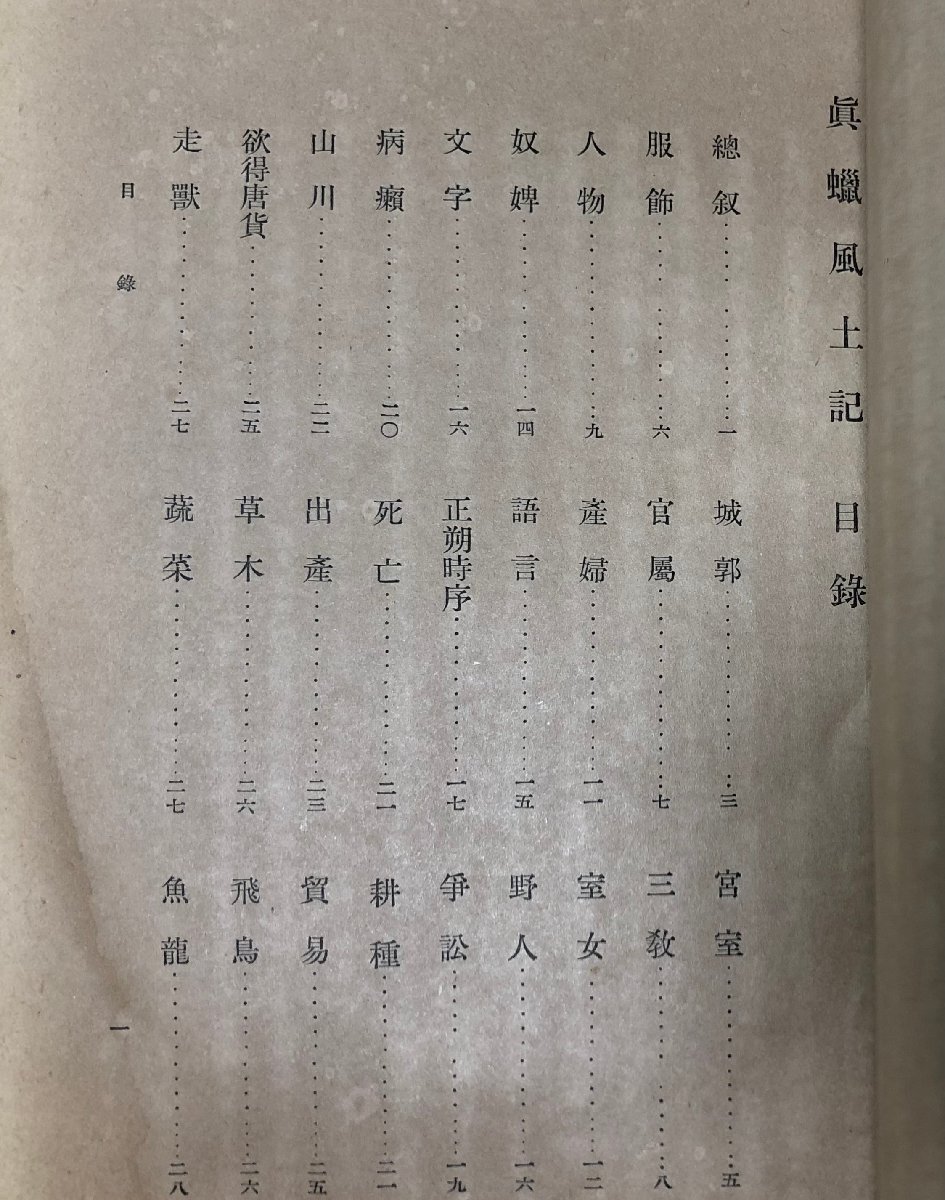 眞蠟風土記 目錄
總叙……一 城郭……三 宮室……五
服飾……六 官屬……七 三敎……八
人物……九 產婦……一一 室女……一二
奴婢……一四 語言……一五 野人……一六
文字……一六 正朔時序……一七 爭訟……一九
病癩……二〇 死亡……二一 耕種……二一
山川……二二 出產……二三 貿易……二五
欲得唐貨……二五 草木……二六 飛鳥……二六
走獸……二七 蔬菜……二七 魚龍……二八
目錄 一